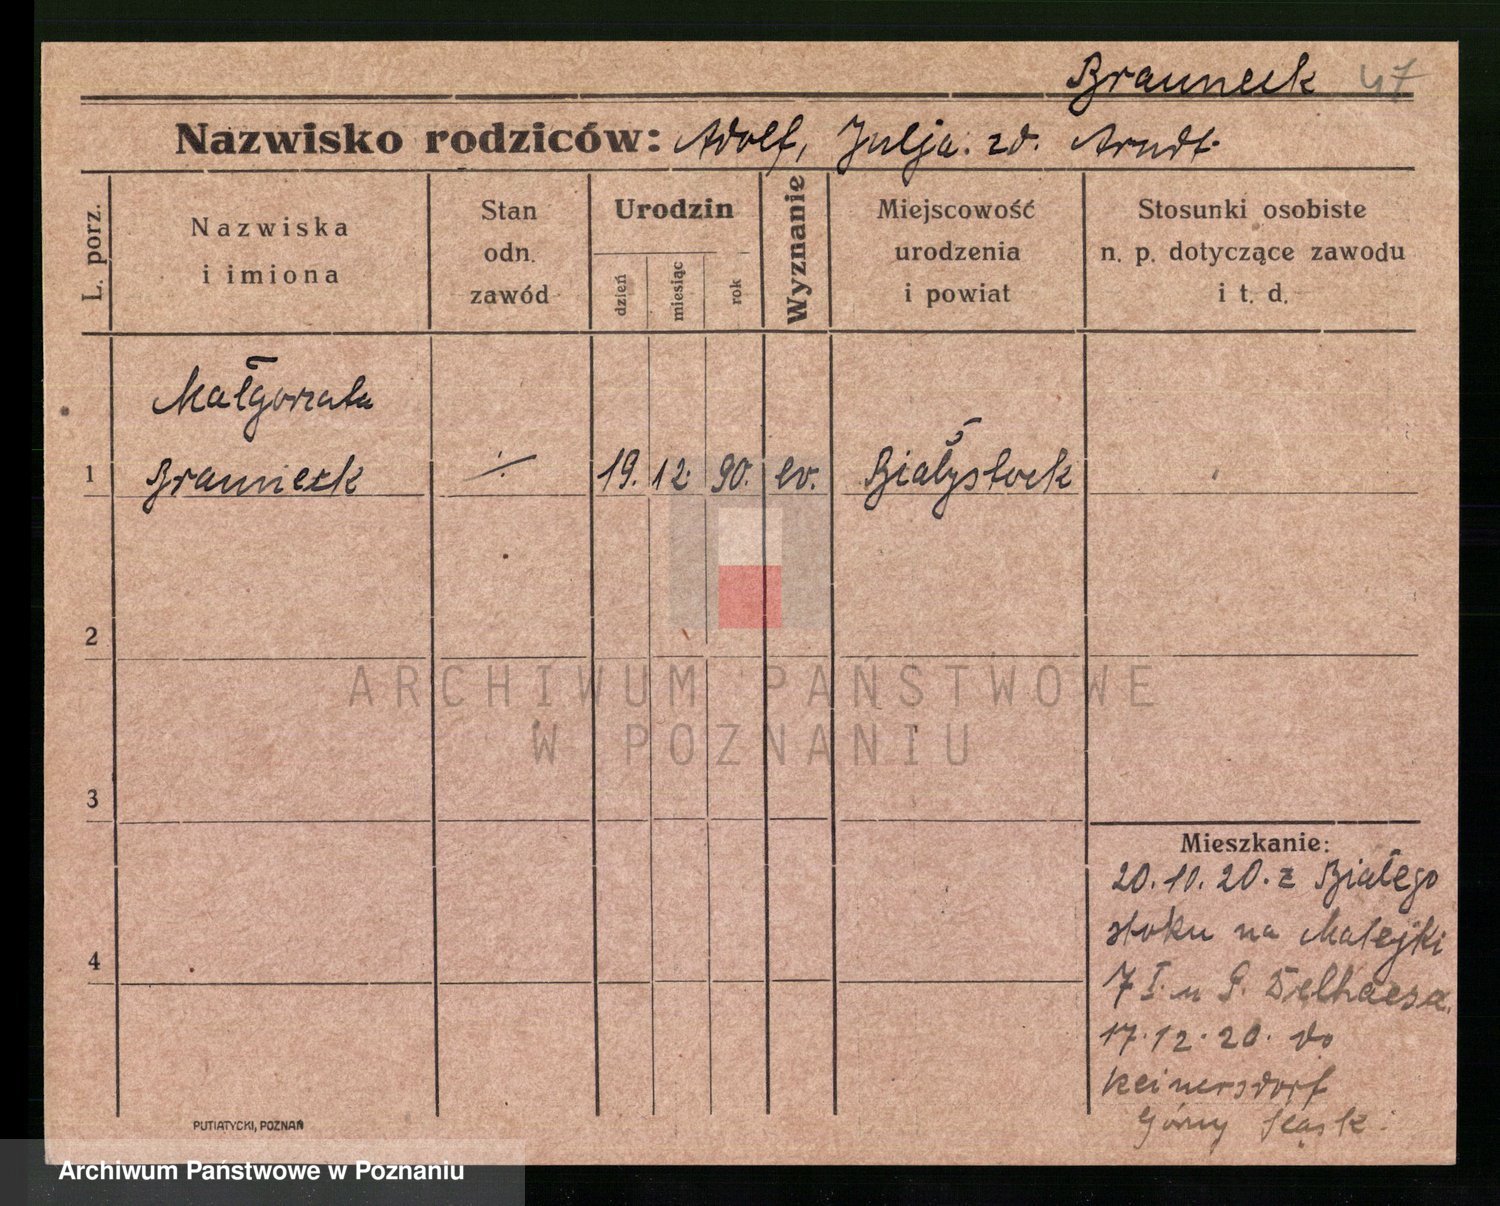 Brauneck 47
Nazwisko rodziców: Adolf, Julja. zd. Arndt.
L. porz.
Nazwiska
i imiona
Stan
odn.
zawód
Urodzin
dzień
miesiąc
rok
Wyznanie
Miejscowość
urodzenia
i powiat
Stosunki osobiste
n. p. dotyczące zawodu
i t. d.
Małgorzata
1 Brauneck ·/· 19. 12. 90. ev. Białystock
2
3
4
ARCHIWUM PAŃSTWOWE
W POZNANIU
Mieszkanie:
20.10.20. z Białego
stoku na Matejki
7 I. u P. Delhaesa.
17.12.20. do
Reinersdorf
Górny Śląsk.
PUTIATYCKI, POZNAŃ
Archiwum Państwowe w Poznaniu